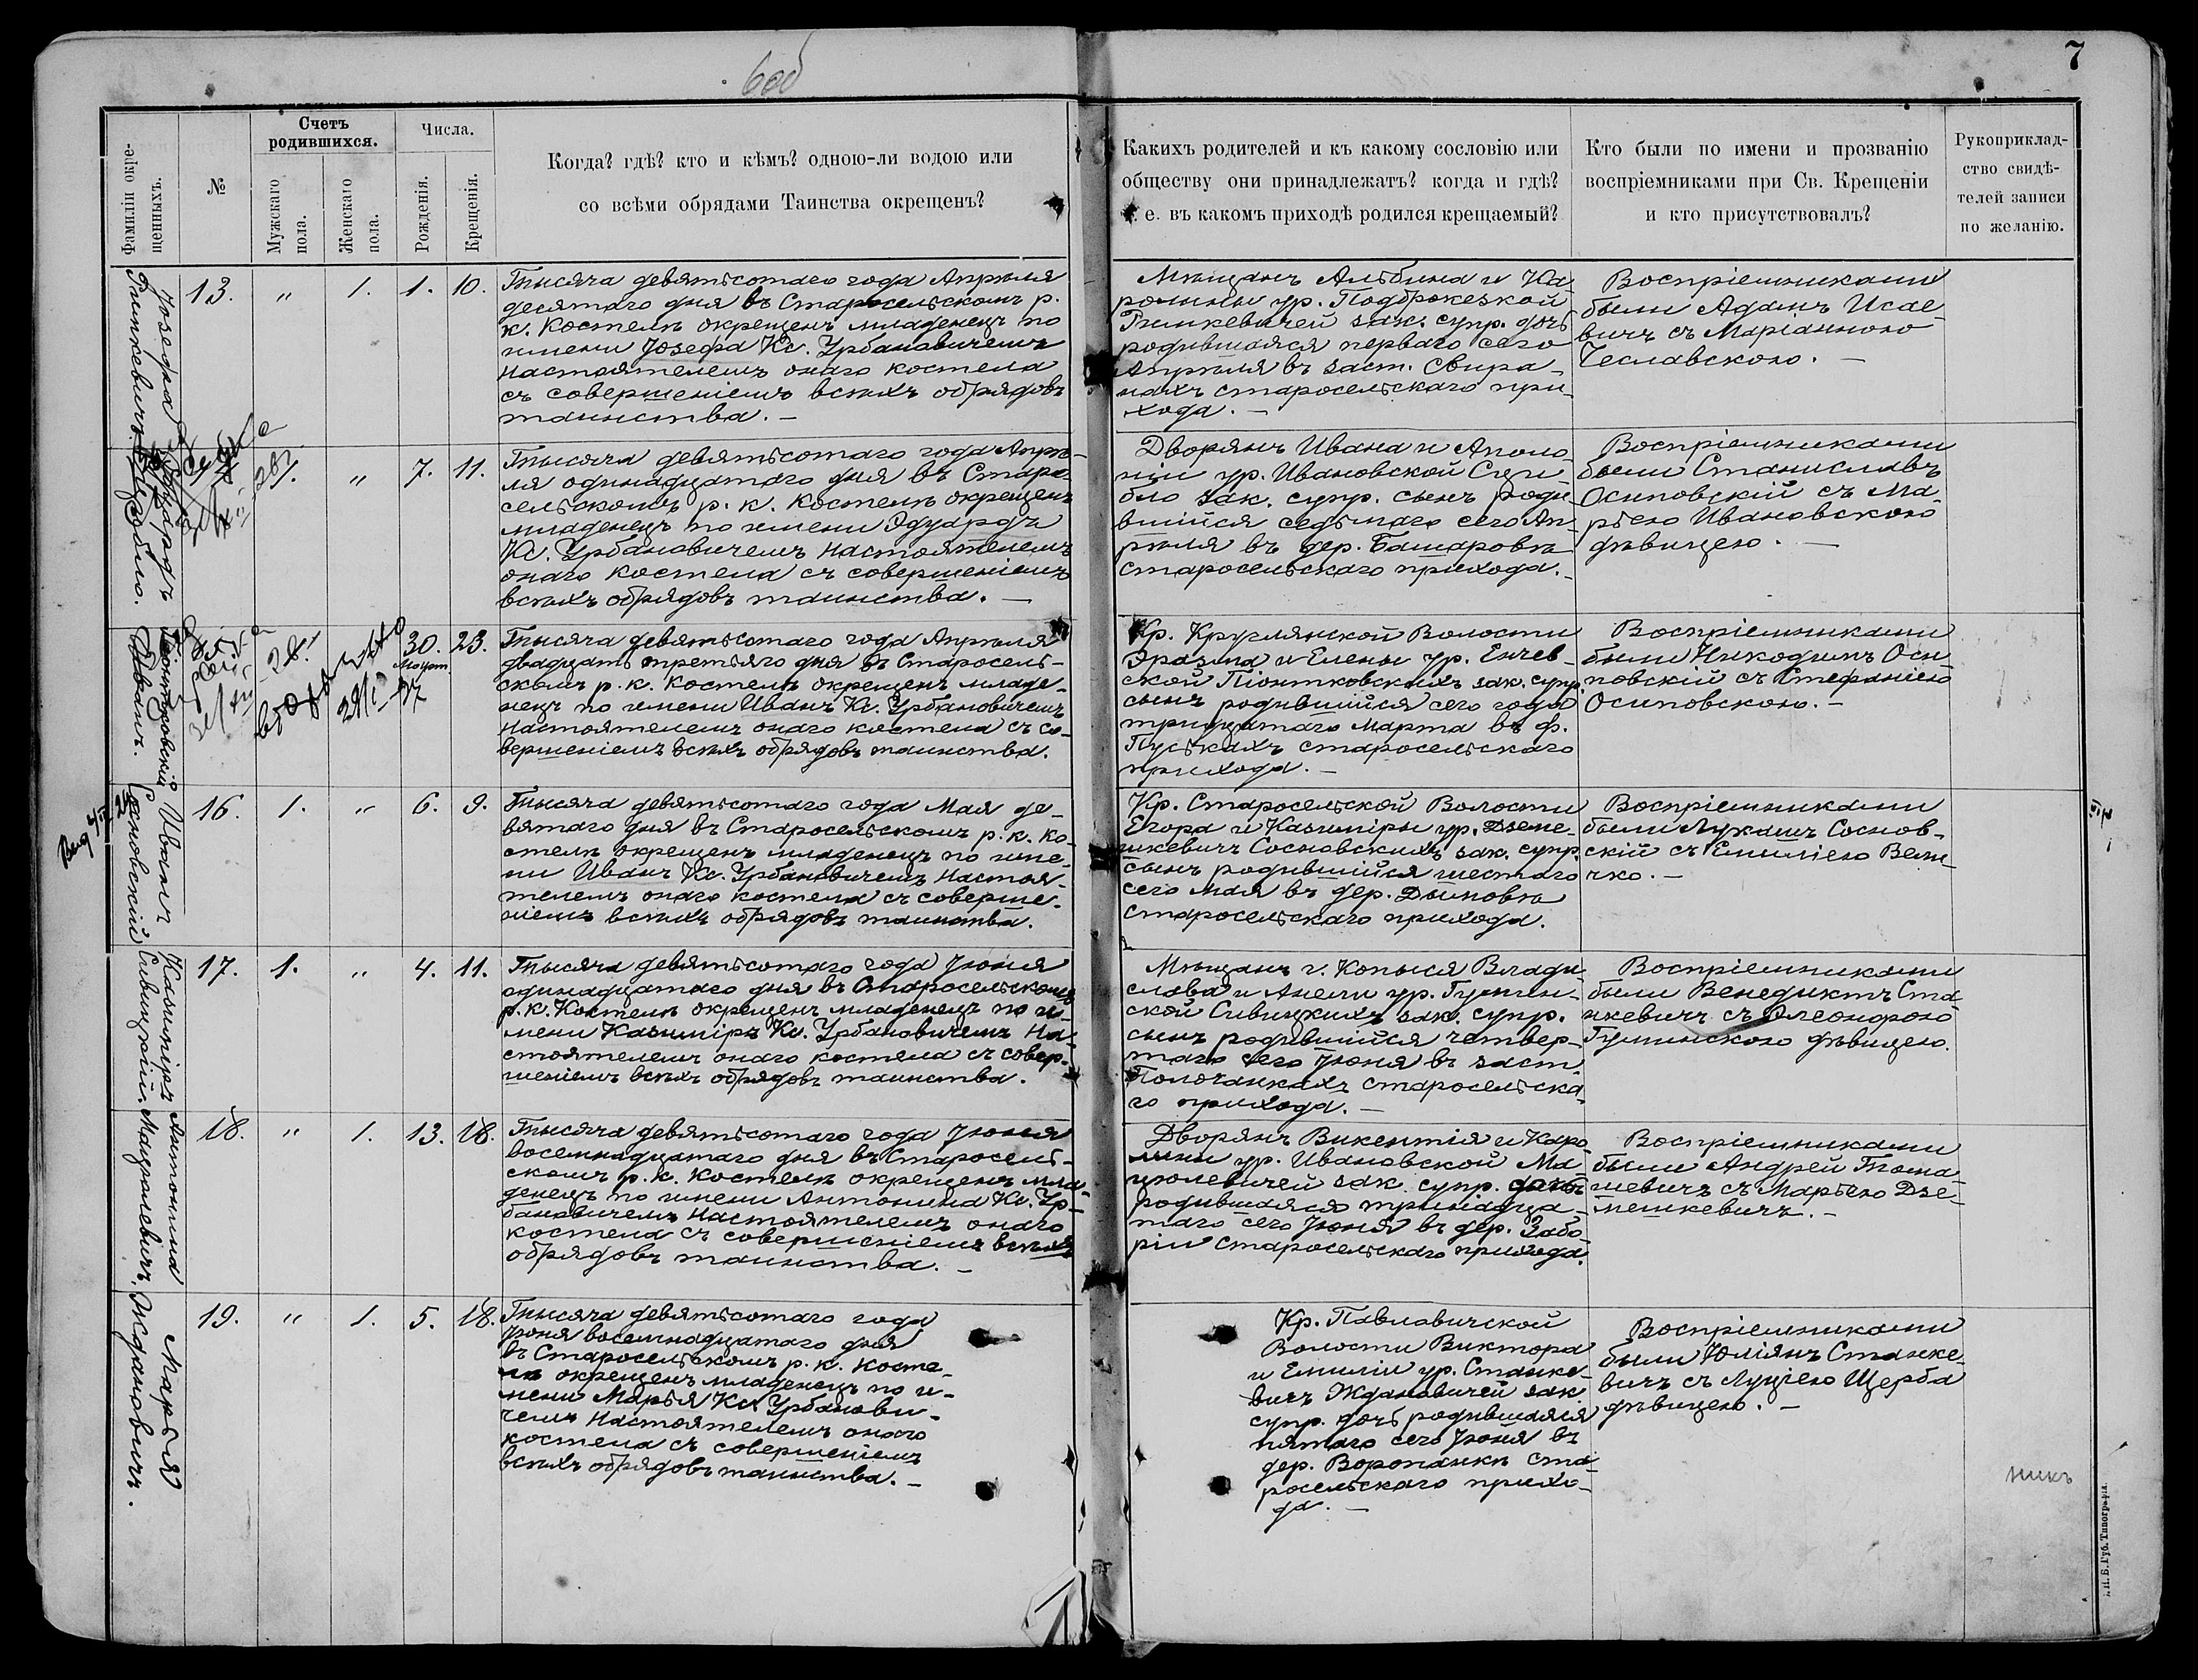 6об
7
Фамиліи окре-
щенныхъ.
№
Счетъ
родившихся.
Мужскаго
пола.
Женскаго
пола.
Числа.
Рожденія.
Крещенія.
Когда? гдѣ? кто и кѣмъ? одною-ли водою или
со всѣми обрядами Таинства окрещенъ?
Какихъ родителей и къ какому сословію или
обществу они принадлежатъ? когда и гдѣ?
т. е. въ какомъ приходѣ родился крещаемый?
Кто были по имени и прозванію
воспріемниками при Св. Крещеніи
и кто присутствовалъ?
Рукоприклад-
ство свидѣ-
телей записи
по желанію.
Юзефа
Римкевичъ.
13. " 1. 1. 10.
Тысяча девятьсотаго года Апрѣля
десятаго дня въ Старосельскомъ р.
к. Костелѣ окрещенъ младенецъ по
имени Юзефа Кс. Урбановичемъ
Настоятелемъ онаго костела
съ совершеніемъ всѣхъ обрядовъ
таинства. —
Мѣщанъ Альбина и Ка-
ролины ур. Подброжезкой
Римкевичей зак. супр. дочь
родившаяся перваго сего
Апрѣля въ заст. Свира-
нахъ старосельскаго при-
хода. —
Воспріемниками
были Адамъ Исае-
вичъ съ Маріанною
Чеславскою. —
Эдуардъ
" 7. 11.
Тысяча девятьсотаго года Апрѣ-
ля одинадцатаго дня въ Старо-
сельскомъ р. к. Костелѣ окрещенъ
младенецъ по имени Эдуардъ
Кс. Урбановичемъ Настоятелемъ
онаго Костела съ совершеніемъ
всѣхъ обрядовъ таинства. —
Дворянъ Ивана и Аполо-
ніи ур. Ивановской Суги-
бло зак. супр. сынъ роди-
вшійся седьмаго сего Ап-
рѣля въ дер. Башаровѣ
Старосельскаго прихода. —
Воспріемниками
были Станиславъ
Осиповскій съ Ма-
рьею Ивановскою
дѣвицею. —
Піонтковскій
Иванъ.
30. 23.
Март.
Тысяча девятьсотаго года Апрѣля
двадцать третьяго дня въ Старосель-
скомъ р. к. Костелѣ окрещенъ младе-
нецъ по имени Иванъ Кс. Урбановичемъ
Настоятелемъ онаго костела съ со-
вершеніемъ всѣхъ обрядовъ таинства.
Кр. Круглянской Волости
Эразма и Елены ур. Енчев-
ской Піонтковскихъ зак. супр.
сынъ родившійся сего года
тридцатаго Марта въ ф.
Пуськахъ старосельскаго
прихода. —
Воспріемниками
были Никодимъ Оси-
повскій съ Стефаніею
Осиповскою. —
Иванъ
Сосновскій
16. 1. " 6. 9.
Тысяча девятьсотаго года Мая де-
вятаго дня въ Старосельскомъ р. к. Ко-
стелѣ окрещенъ младенецъ по име-
ни Иванъ Кс. Урбановичемъ Настоя-
телемъ онаго костела съ соверше-
ніемъ всѣхъ обрядовъ таинства.
Кр. Старосельской Волости
Егора и Казиміры ур. Дземе-
шкевичъ Сосновскихъ зак. супр.
сынъ родившійся шестаго
сего мая въ дер. Дымовѣ
старосельскаго прихода.
Воспріемниками
были Лукашъ Соснов-
скій съ Емиліею Вели-
чко. —
Казиміръ
Сивицкій.
17. 1. " 4. 11.
Тысяча девятьсотаго года Іюня
одинадцатаго дня въ Старосельскомъ
р. к. Костелѣ окрещенъ младенецъ по и-
мени Казиміръ Кс. Урбановичемъ На-
стоятелемъ онаго костела съ совер-
шеніемъ всѣхъ обрядовъ таинства.
Мѣщанъ г. Копыся Влади-
слава и Анели ур. Гумин-
ской Сивицкихъ зак. супр.
сынъ родившійся четвер-
таго сего Іюня въ заст.
Полочанкахъ старосельска-
го прихода. —
Воспріемниками
были Венедиктъ Ста-
нкевичъ съ Элеонорою
Гуминскою дѣвицею.
Антонина
Мацюлевичъ.
18. " 1. 13. 18.
Тысяча девятьсотаго года Іюня
восемнадцатаго дня въ Старосель-
скомъ р. к. Костелѣ окрещенъ мла-
денецъ по имени Антонина Кс. Ур-
бановичемъ Настоятелемъ онаго
костела съ совершеніемъ всѣхъ
обрядовъ таинства. —
Дворянъ Викентія и Каро-
лины ур. Ивановской Ма-
цюлевичей зак. супр. дочь
родившаяся тринадца-
таго сего Іюня въ дер. Забо-
ріи старосельскаго прихода.
Воспріемниками
были Андрей Тома-
шевичъ съ Марьею Дзе-
мешкевичъ. —
Марья
Ждановичъ.
19. " 1. 5. 18.
Тысяча девятьсотаго года
Іюня восемнадцатаго дня
въ Старосельскомъ р. к. Косте-
лѣ окрещенъ младенецъ по и-
мени Марья Кс. Урбанови-
чемъ Настоятелемъ онаго
костела съ совершеніемъ
всѣхъ обрядовъ таинства. —
Кр. Павловичской
Волости Виктора
и Емиліи ур. Станке-
вичъ Ждановичей зак.
супр. дочь родившаяся
пятаго сего Іюня въ
дер. Воропанки ста-
росельскаго прихо-
да. —
Воспріемниками
были Юліянъ Станке-
вичъ съ Луціею Щерба
дѣвицею. —
никъ
Губ. Типографія.